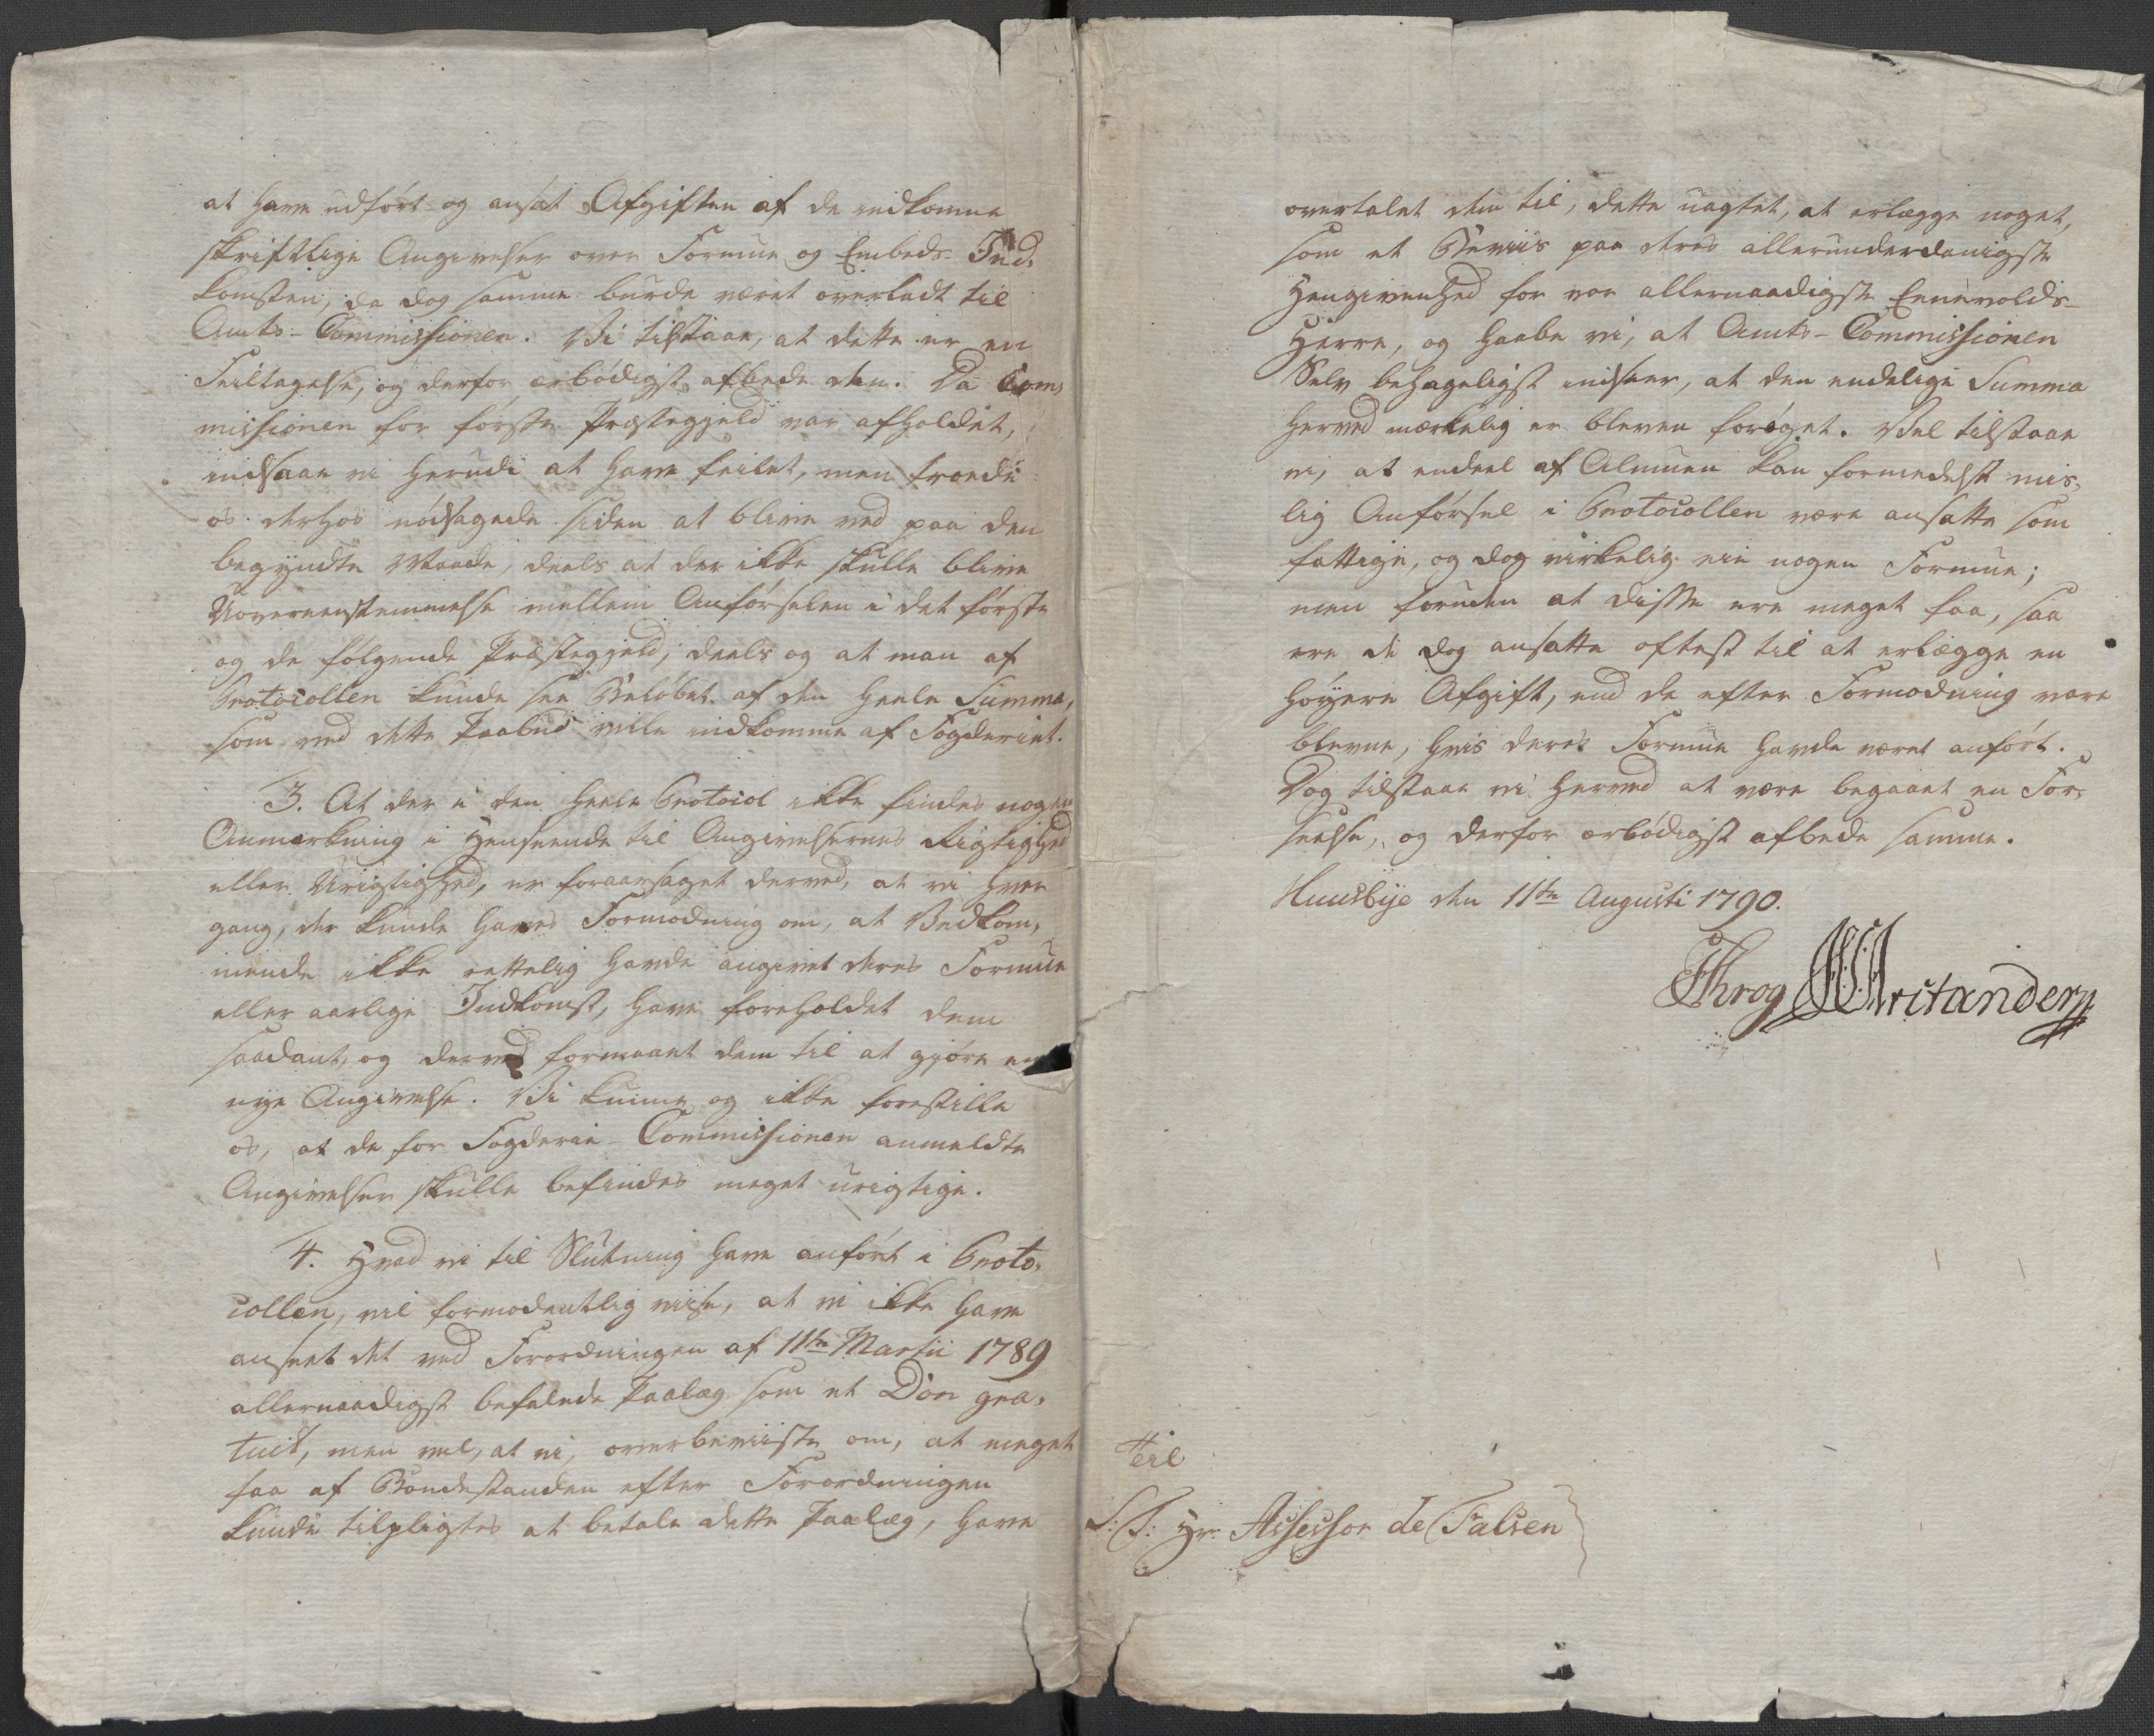 at have udført og ansat Afgiften af de indkomne
skriftlige Angivelser over Formue og Embeds-Ind-
komsten, da dog samme burde været overladt til
Amts-Commissionen. Vi tilstaae, at dette er en
Feiltagelse, og derfor ærbödigst afbede den. Da Com-
missionen for förste Præstegjeld var afholdet,
indsaae vi herudi at have feilet, men troede
os derhos nödsagede siden at blive ved paa den
begyndte Maade, deels at der ikke skulle blive
Uovereenstemmelse mellem Anförselen i det förste
og de fölgende Præstegjeld, deels og at man af
Protocollen kunde see Belöbet af den heele Summa,
som ved dette Paabud ville indkomme af Fogderiet.
3. At der i den heele Protocol ikke findes nogen
Anmærkning i Henseende til Angivelsernes Rigtighed
eller Urigtighed, er foraarsaget derved, at vi hver
gang, der kunde haves Formodning om, at Vedkom-
mende ikke rettelig havde angivet deres Formue
eller aarlige Indkomst, have foreholdet dem
saadant, og derved formaaet dem til at gjöre en
nye Angivelse. Vi kunne og ikke forestille
os, at de for Fogderie-Commissionen anmeldte
Angivelser skulle befindes meget urigtige.
4. Hvad vi til Slutning have anfört i Proto-
collen, vil formodentlig viise, at vi ikke have
anseet det ved Forordningen af 11te Martii 1789
allernaadigst befalede Paalæg som et Don gra-
tuit, men vel, at vi, overbeviiste om, at meget
faa af Bondestanden efter Forordningen
kunde tilpligtes at betale dette Paalæg, have
overtalet dem til, dette uagtet, at erlægge noget,
som et Beviis paa deres allerunderdanigste
Hengivenhed for vor allernaadigste Eenevolds-
Herre, og haabe vi, at Amts-Commissionen
Selv behageligst indseer, at den endelige Summa
herved mærkelig er bleven foröget. Vel tilstaae
vi, at endeel af Almuen kan formedelst mis-
lig Anförsel i Protocollen være ansatte som
fattige, og dog virkelig eie nogen Formue;
men foruden at disse ere meget faa, saa
ere de dog ansatte oftest til at erlægge en
höyere Afgift, end de efter Formodning vare
blevne, hvis deres Formue havde været anfört.
Dog tilstaae vi herved at være begaaet en For-
seelse, og derfor ærbödigst afbede samme.
Huusbye den 11te Augusti 1790.
Til
S: T: Hr: Assessor de Falsen